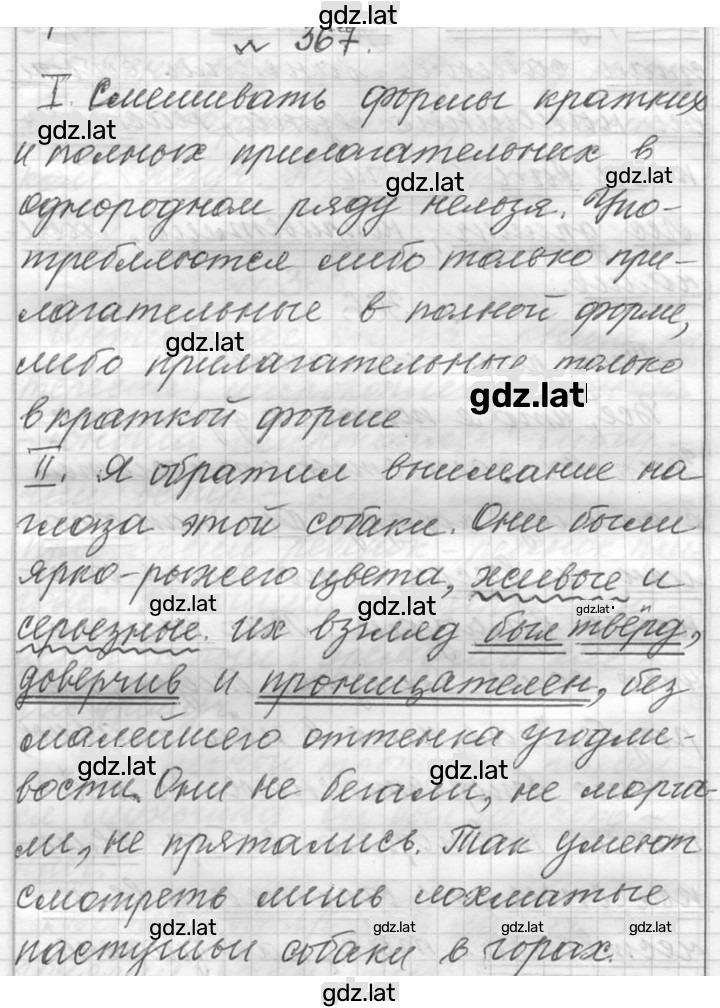 gdz.lat
№ 367.
I. Смешивать формы кратких
gdz.lat
и полных прилагательных в
gdz.lat gdz.lat
однородном ряду нельзя. Упо-
требляются либо только при-
лагательные в полной форме,
gdz.lat
либо прилагательные только
gdz.lat
в краткой форме
II. Я обратил внимание на
глаза этой собаки. Они были
ярко-рыжего цвета, живые и
gdz.lat gdz.lat gdz.lat
серьезные. их взгляд был твёрд,
доверчив и проницателен, без
малейшего оттенка угодли-
gdz.lat gdz.lat
вости. Они не бегали, не морга-
ли, не прятались. Так умеют
смотреть лишь лохматые
gdz.lat gdz.lat gdz.lat gdz.lat
пастушьи собаки в горах.
gdz.lat